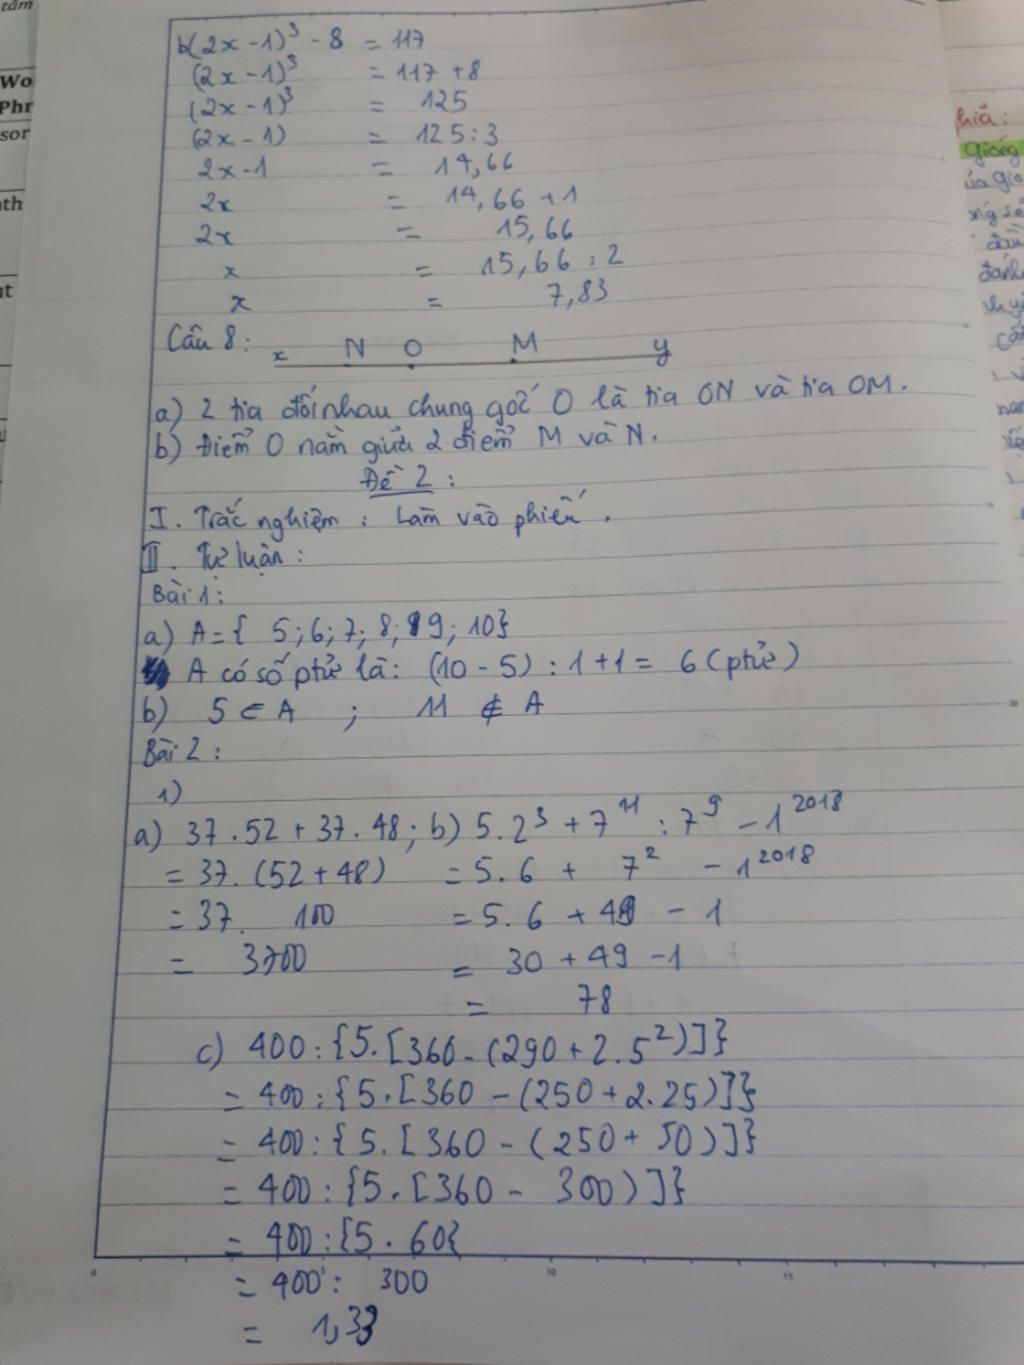 b(2x - 1)³ - 8 = 117
(2x - 1)³ = 117 + 8
(2x - 1)³ = 125
(2x - 1) = 125 : 3
2x - 1 = 14,66
2x = 14,66 + 1
2x = 15,66
x = 15,66 : 2
x = 7,83
Câu 8: x N O M y
a) 2 tia đối nhau chung gốc O là tia ON và tia OM.
b) Điểm O nằm giữa 2 điểm M và N.
Đề 2:
I. Trắc nghiệm: Làm vào phiếu.
II. Tự luận:
Bài 1:
a) A = { 5; 6; 7; 8; 9; 10}
A có số phtử là: (10 - 5) : 1 + 1 = 6 (phtử)
b) 5 ∈ A ; 11 ∉ A
Bài 2:
1)
a) 37 . 52 + 37 . 48; b) 5 . 2³ + 7¹¹ : 7⁹ - 1²⁰¹⁸
= 37 . (52 + 48) = 5 . 6 + 7² - 1²⁰¹⁸
= 37 . 100 = 5 . 6 + 49 - 1
= 3700 = 30 + 49 - 1
= 78
c) 400 : {5 . [360 - (290 + 2 . 5²)]}
= 400 : {5 . [360 - (250 + 2 . 25)]}
= 400 : {5 . [360 - (250 + 50)]}
= 400 : {5 . [360 - 300)]}
= 400 : {5 . 60{
= 400 : 300
= 1,33
tâm
Wo
Phr
sor
ath
hĩa:
giống
0
10
15